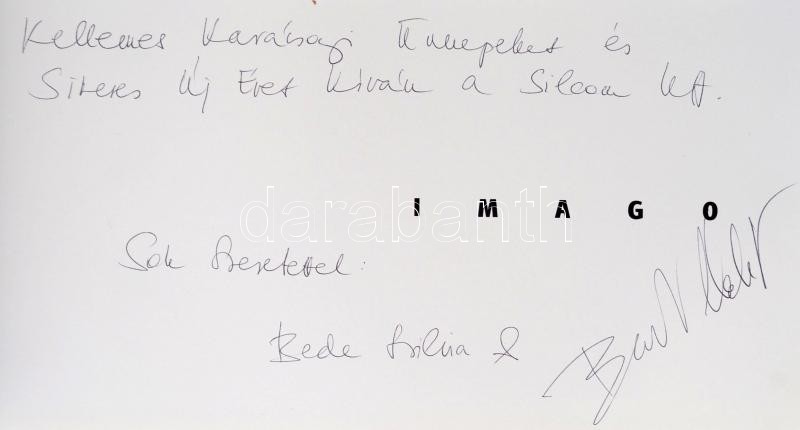 Kellemes Karácsonyi Ünnepeket és
Sikeres Új Évet Kíván a Silcom Kft.
IMAGO
darabanth
Sok Szeretettel:
Bede Szilvia &